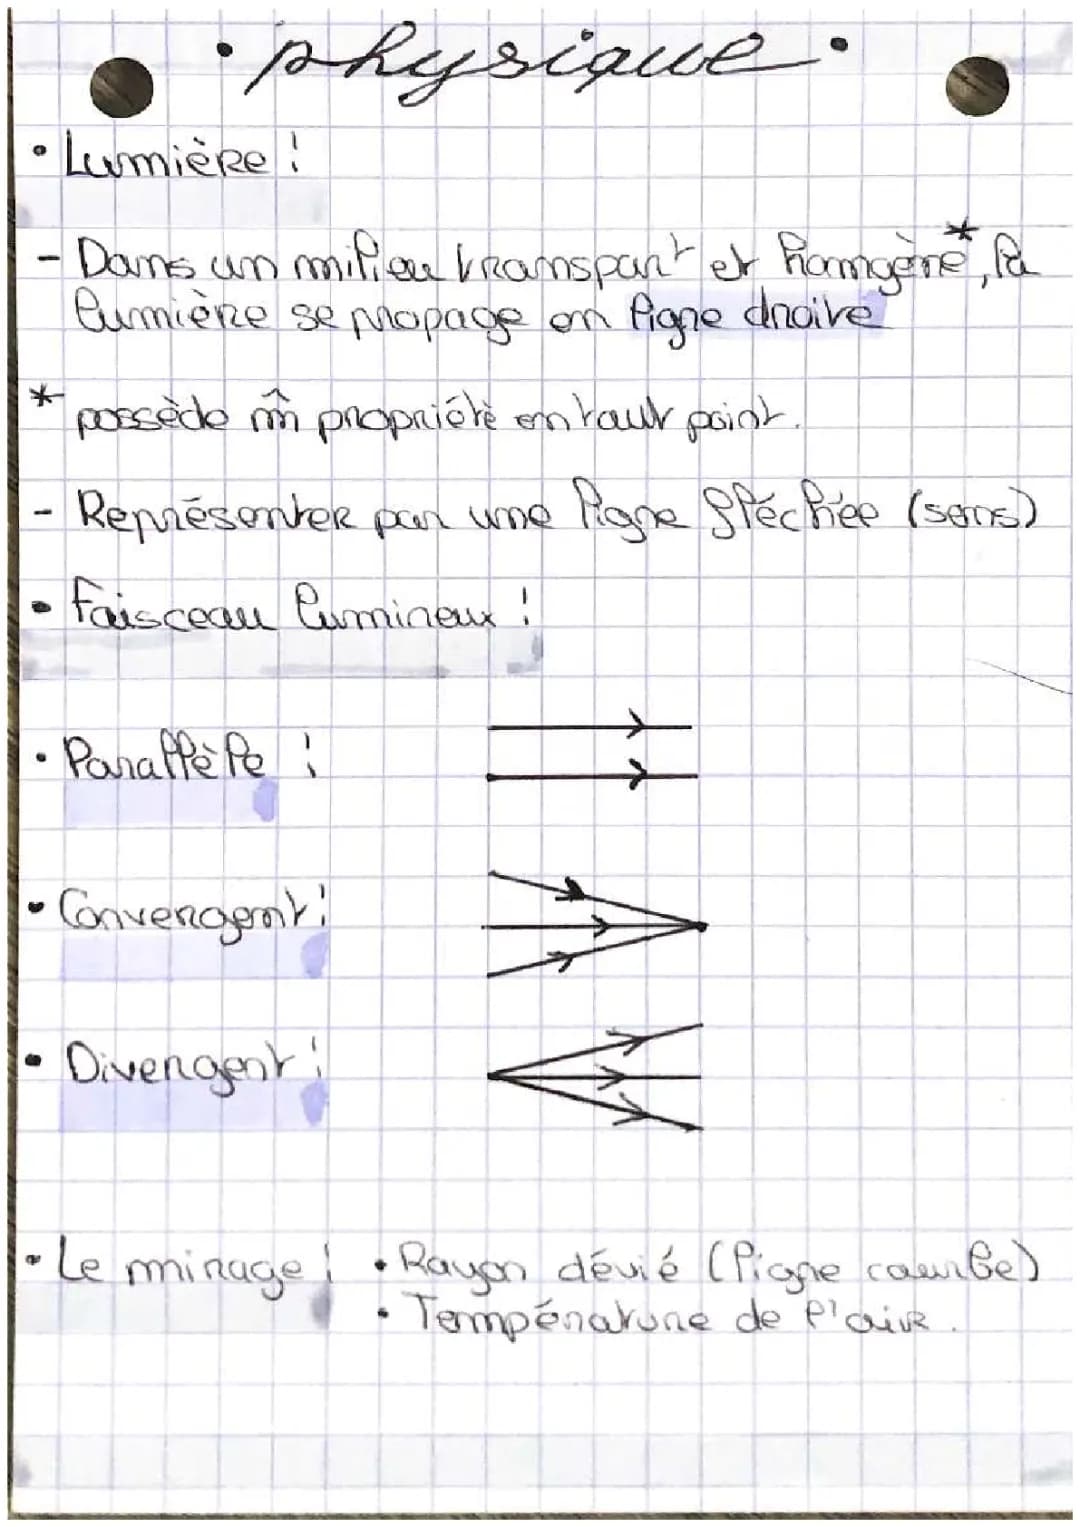 • physique •
• Lumière :
- Dans un milieu transpart et homgène*, la
lumière se propage en ligne droite
* possède m̂ propriétè en tout point.
- Représenter par une ligne fléchée (sens)
• Faisceau lumineux :
• Parallèle :
• Convergent :
• Divergent :
• Le mirage : • Rayon dévié (ligne courbe)
• Température de l'air.